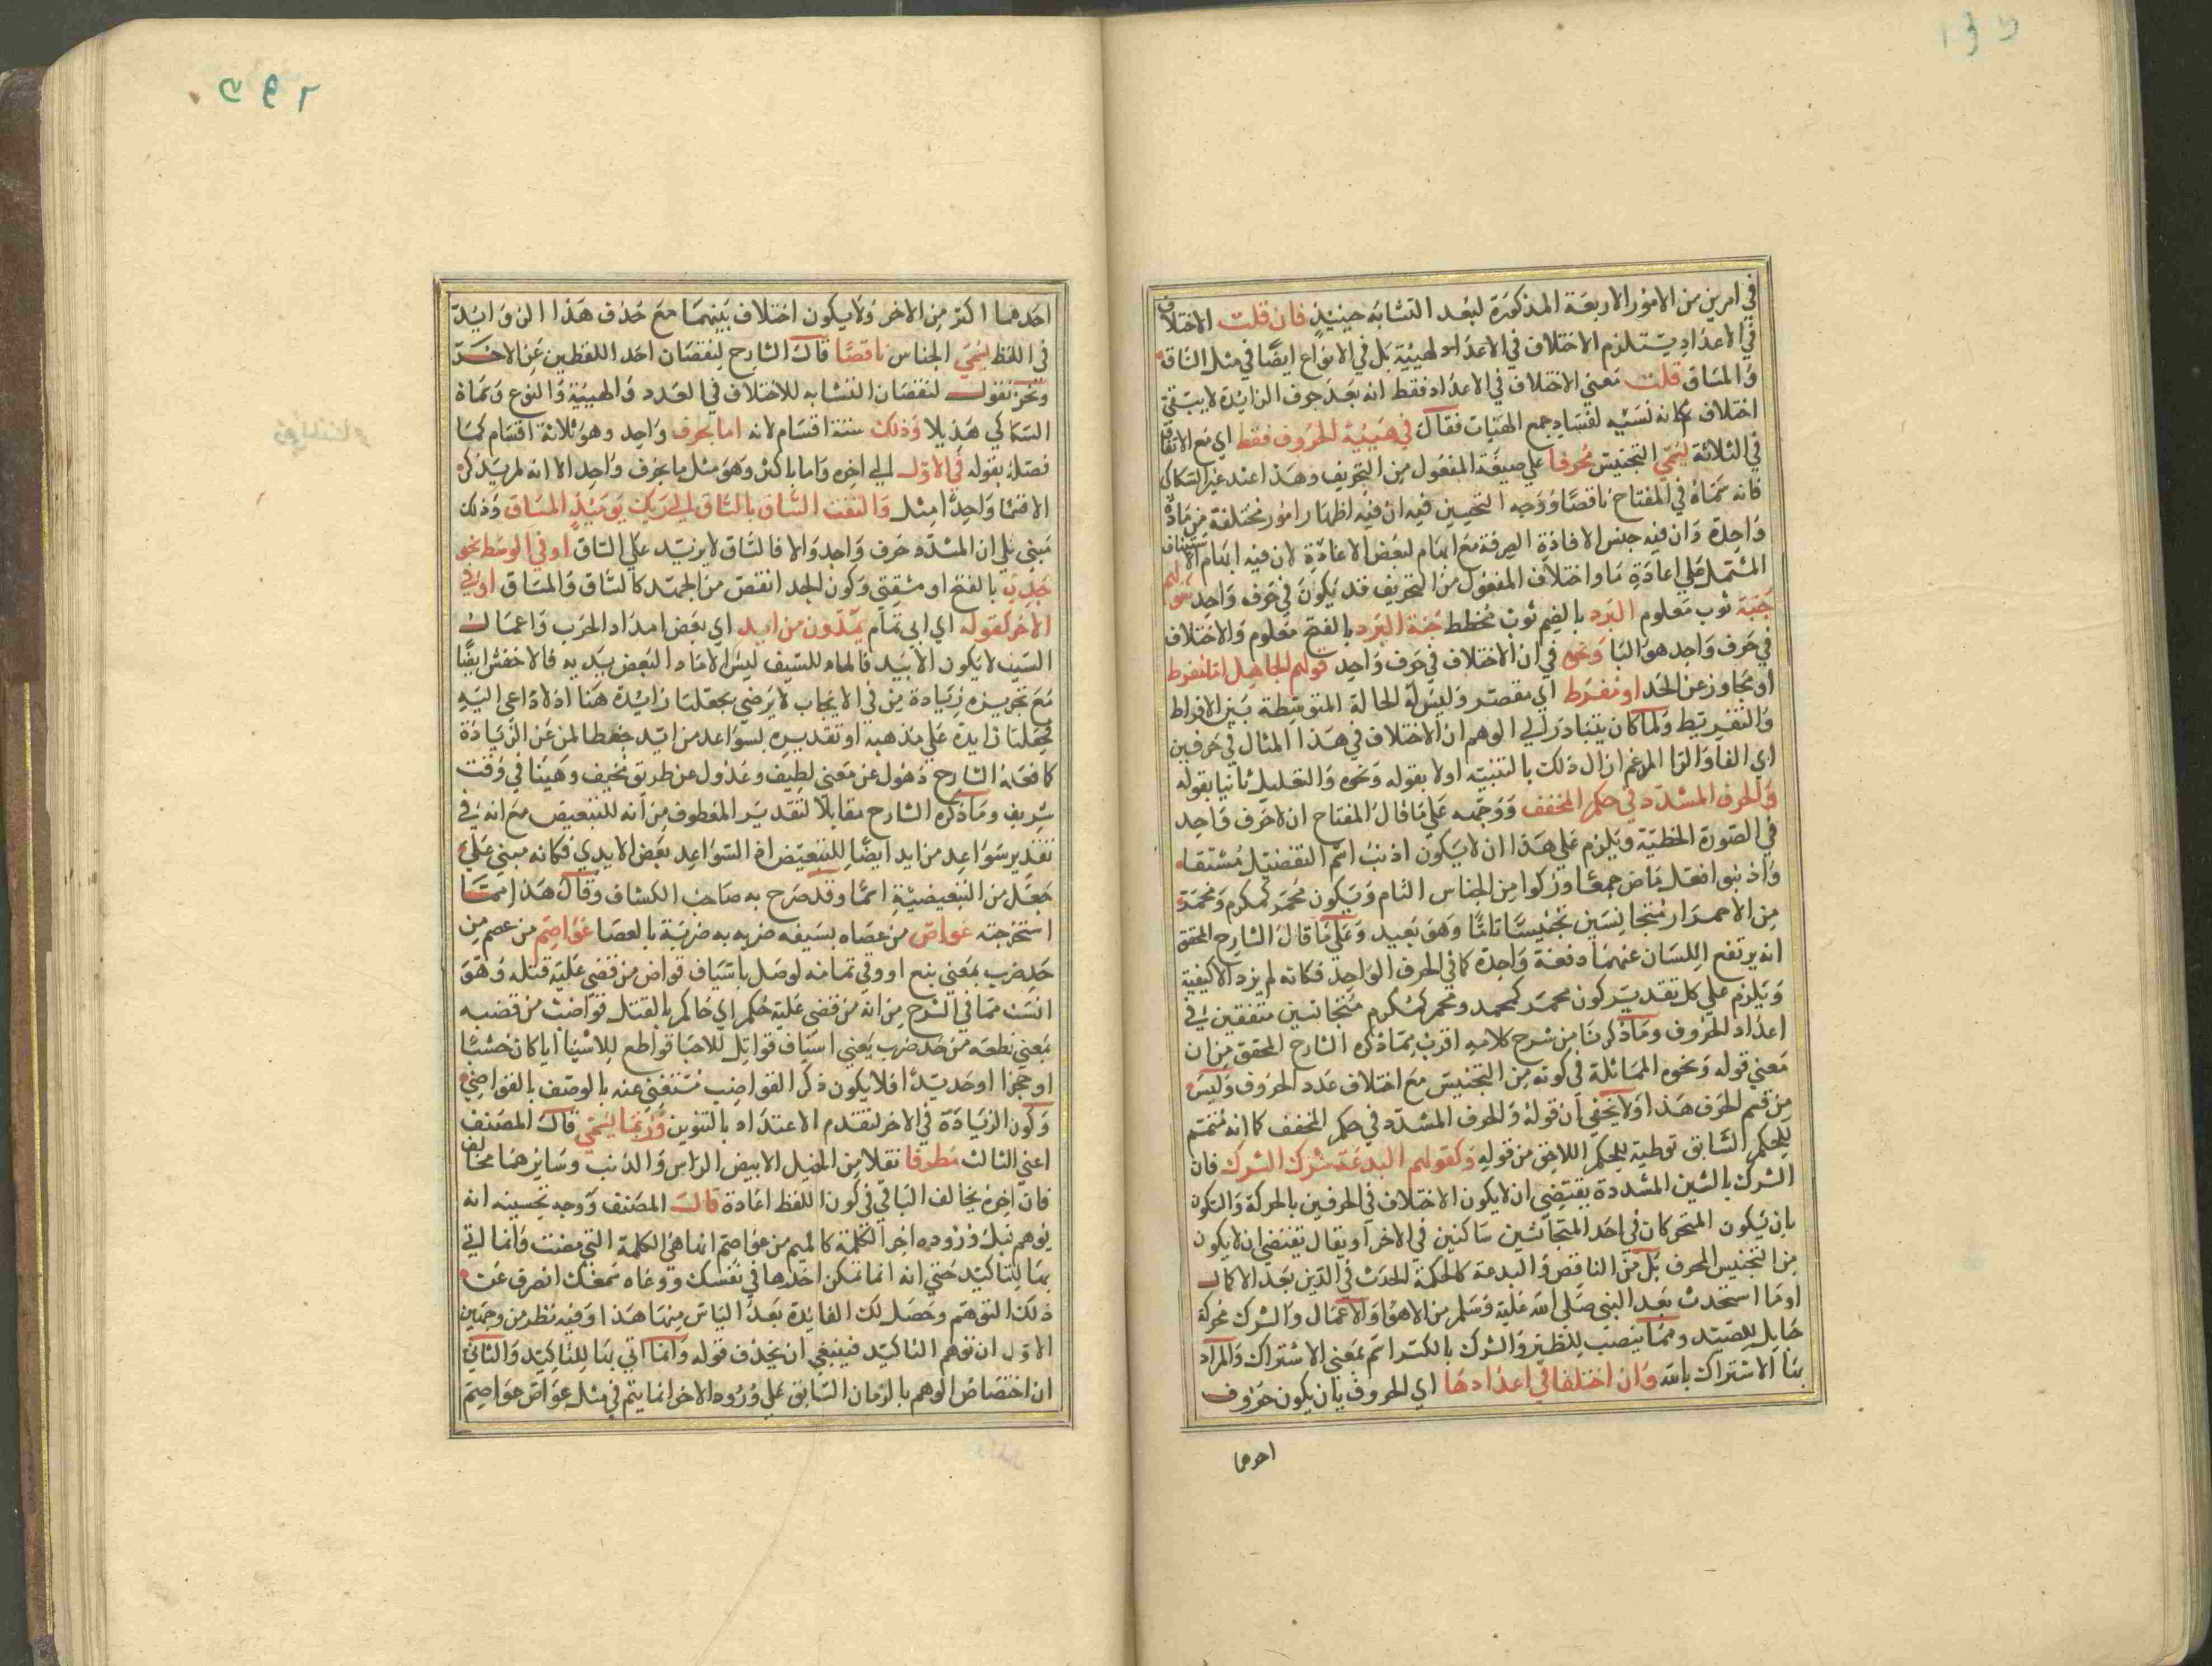 في امرين من الامور الاربعة المذكورة لبعد التشابه حينيذ فان قلت الاختلاف
في الاعداد يستلزم الاختلاف في الاعداد والهيئية بل في الانواع ايضا في مثل الساق
والمساق قلت معني الاختلاف في الاعداد فقط انه بعد حرف الزايدة لا يبتقي
اختلاف فكانه نسيه لفساد جمع الهيات فقال في هيئية الحروف فقط اي مع الاتفاق
في الثلاثة يسمي التجنيس محرفا علي صيغة المفعول من التحريف وهذا عند غير السكاكي
فانه سماه في المفتاح ناقصا ووجه التحسين فيه ان فيه اظهار امور مختلفة من مادة
واحدة وان فيه جنس الافادة الصرفة مع ايهام لبعض الاعادة لان فيه ايهام الاستيناف
المشتمل علي اعادة ما واختلاف المفعول من التحريف قد يكون في حرف واحد كقولهم
جبة ثوب معلوم البرد بالضم ثوب مخطط جنة البرد بالفتح معلوم والاختلاف
في حرف واحد هو البا ونحوه في ان الاختلاف في حرف واحد قولهم الجاهل اما مفرط
او مجاوز عن الحد او مفرط اي مقصر وليس له الحالة المتوسطة بين الافراط
والتفريط ولما كان يتبادر الي الوهم ان الاختلاف في هذا المثال في حرفين
اي الفا والرا المدغم ازال ذلك بالتنبيه اولا بقوله ونحوه والتعليل ثانيا بقوله
والحرف المشدد في حكم المخفف ووجهه علي ما قال المفتاح ان لا حرف واحد
في الصورة الخطية ويلزم علي هذا ان لا يكون اذنب اسم التفضيل مشتقا
واذنبوا فعل ماض جمعا وذكوا من الجناس التام ويكون محمر كمكرم ومحمرة
من الاحمرار متجانسين تجنيسا تاما وهو بعيد وعلي ما قال الشارح المحقق
انه يرتفع اللسان عنهما دفعة واحدة كما في الحرف الواحد فكانه لم يزد الا كيفية
ويلزم علي كل تقدير كون محمر كمحمد ومحمر كمكرم متجانسين متفقين في
اعداد الحروف وما ذكرنا من شرح كلامه اقرب مما ذكره الشارح المحقق من ان
معني قوله ونحوه المماثلة في كونه من التجنيس مع اختلاف عدد الحروف وليس
من قسم الحرف هذا ولا يخفي ان قوله والحرف المشدد في حكم المخفف كما انه متمم
للحكم السابق توطية للحكم اللاحق من قوله وكقولهم البدعة شرك الشرك فان
الشرك بالشين المشددة يقتضي ان لا يكون الاختلاف في الحرفين بالحركة والسكون
بان يكون المتحركان في احد المتجانسين ساكنين في الاخر او يقال تقتضي ان لا يكون
من التجنيس المحرف بل من الناقص والبدعة كالحكمة الحدث في الدين بعد الاكمال
او ما استحدث بعد النبي صلي الله عليه وسلم من الاهوا والاعمال والشرك محركة
حبايل للصيد ومما ينصب للطير والشرك بالكسر اسم بمعني الاشتراك والمراد
هنا الاشراك بالله وان اختلفا في اعدادها اي الحروف بان يكون حروف
احدهما
احدهما اكثر من الاخر ولا يكون اختلاف بينهما مع حذف هذا الزوايدة
في اللفظ يسمي الجناس ناقصا قال الشارح لنقصان احد اللفظين عن الاخر
ونحن نقول لنقصان التشابه للاختلاف في العدد والهيئية والنوع وسماه
السكاكي مذيلا وذلك ستة اقسام لانه اما بحرف واحد وهو ثلاثة اقسام كما
فصله بقوله في الاول الي اخره واما باكثر وهو مثل ما بحرف واحد الا انه لم يذكر
الا قسما واحدا مثل والتفت الساق بالساق الي ربك يوميذ المساق وذلك
مبني علي ان المشدد حرف واحد والا فالساق لا يزيد علي الساق او في الوسط نحو
جدي بالفتح او مشقتي وكون الجد انقص من الجهد كالساق والمساق او في
الاخر كقوله اي ابي تمام يمدون من ايد اي بعض امداد الحرب واعمال
السيف لا يكون الا بيد فالهاء للسيف ليس الا ماد البعض بيد به فالاخفش ايضا
مع تجويزه زيادة من في الايجاب لا يرضي بجعلنا زايدة هنا اذ لا داعي اليه
فجعلنا زايدة علي مذهبه او تقديره بسواعد من ايد حفظا لمن عن الزيادة
كما فعله الشارح ذهول عن معني لطيف وعدول عن طريق نحيف وهينا في وقت
شريف وما ذكره الشارح مقابلا لتقدير المعطوف من انه للتبعيض مع انه في
تقدير سواعد من ايد ايضا للتبعيض اذ السواعد بعض الايدي فكانه مبني علي
جعل من التبعيضية اسما وقد صرح به صاحب الكشاف وقال هذا مما
استخرجته عواص من عصاه بسيفه ضربه به ضربة بالعصا عواصم من عصم من
حد ضرب بمعني منع او وقي تمامه لوصل باسياف قواض من قضي عليه قتله وهو
انسب مما في الشرح من انه من قضي عليه حكم اي حاكم بالقتل قواضب من قضبه
بمعني قطعه من حد ضرب يعني اسياف قواتل للاحيا قواطع للاشيا ايا كان خشبا
او حجرا او حديدا فلا يكون ذكر القواضب مستغني عنه بالوصف بالقواضي
وكون الزيادة في الاخر لتقدم الاعتداد بالتنوين وربما يسمي قال المصنف
اعني الثالث مطرفا نقلا من الخيل الابيض الراس والذنب وسايرهما مخالف
فان اخره يخالف الباقي في كون اللفظ اعادة قال المصنف ووجه تحسينه انه
يوهم قبل وروده اخر الكلمة كالميم من عواصم انها هي الكلمة التي مضت وانما اتي
بها للتاكيد حتي انه انما تمكن اخرها في نفسك ووعاه سمعك انصرف عن
ذلك التوهم وحصل لك الفايدة بعد الياس منها هذا وفيه نظر من وجهين
الاول ان توهم التاكيد فينبغي ان يحذف قوله وانما اتي بها للتاكيد والثاني
ان اختصاص الوهم بالزمان السابق علي ورود الاخر انما يتم في مثل عواص عواصم